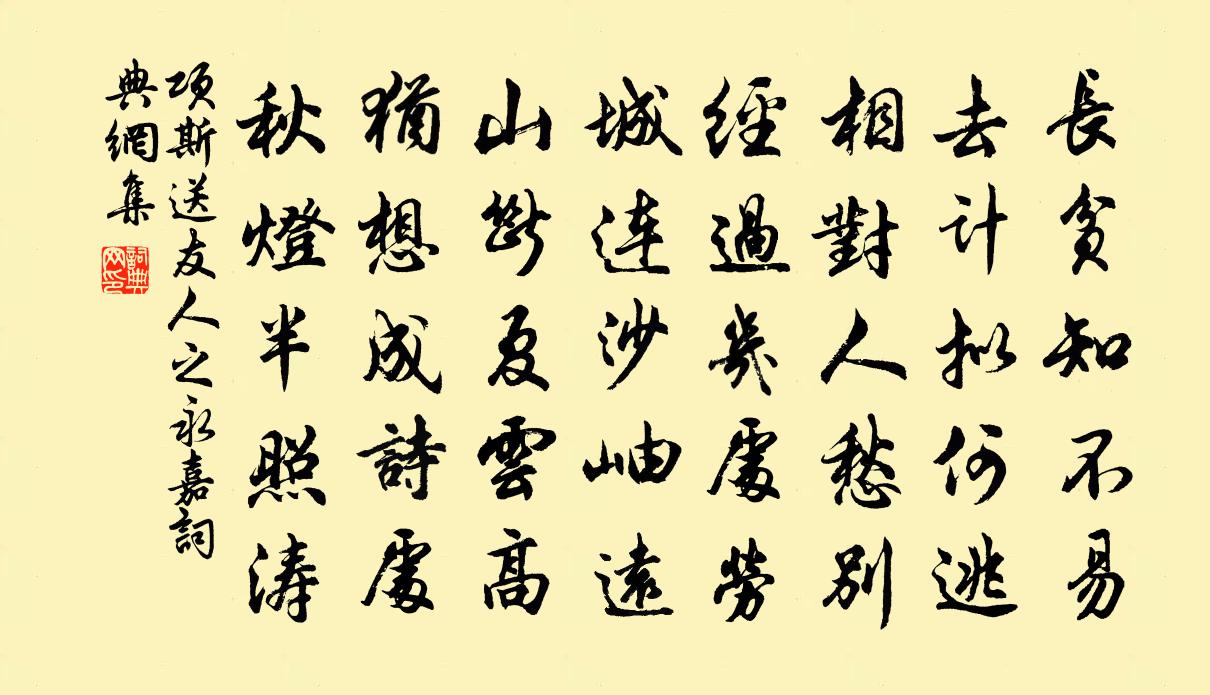 長貧知不易
去計拟何逃
相對人愁別
經過幾處勞
城連沙岫遠
山斷夏雲高
猶想成詩處
秋燈半照濤
項斯送友人之永嘉詞
典網集
詞典
网印